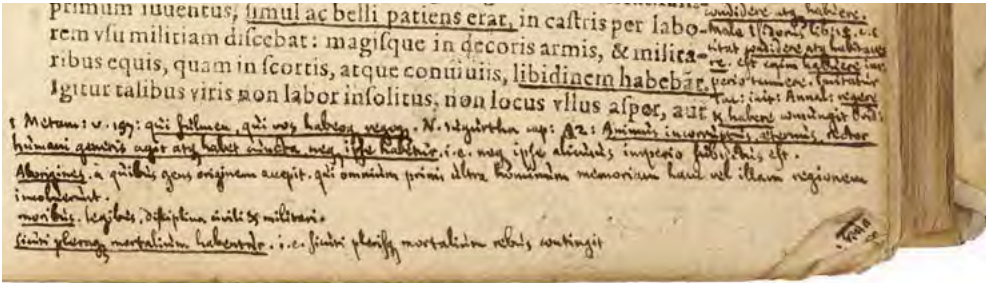 primum iuuentus, simul ac belli patiens erat, in castris per labo-
rem vsu militiam discebat: magisque in decoris armis, & milita-
ribus equis, quam in scortis, atque conuiuiis, libidinem habebāt.
Igitur talibus viris non labor insolitus, non locus vllus asper, aut
condidere atq; habuere.
male Isidorus lib. 15. c.
citat condidere atq; habitaue
re. est enim habuere im-
perio tenuere. Imitatur
Tac: init: Annal: regere
& habere coniungit Ovid:
1 Metam: v. 197: qui fulmen, qui vos habeoq; regoq;. Iugurtha cap: 2: Animus incorruptus, eternus, rector
humani generis agit atq; habet cuncta neq; ipse habetur. i.e. neq; ipse alicuius imperio subiectus est.
Aborigines. a quibus gens originem accepit. qui omnium primi ultra hominum memoriam hanc vel illam regionem
incoluerunt.
moribus. legibus, disciplina civili & militari.
sicuti pleraq; mortalium habentur. i.e. sicuti plerisq; mortalium rebus contingit